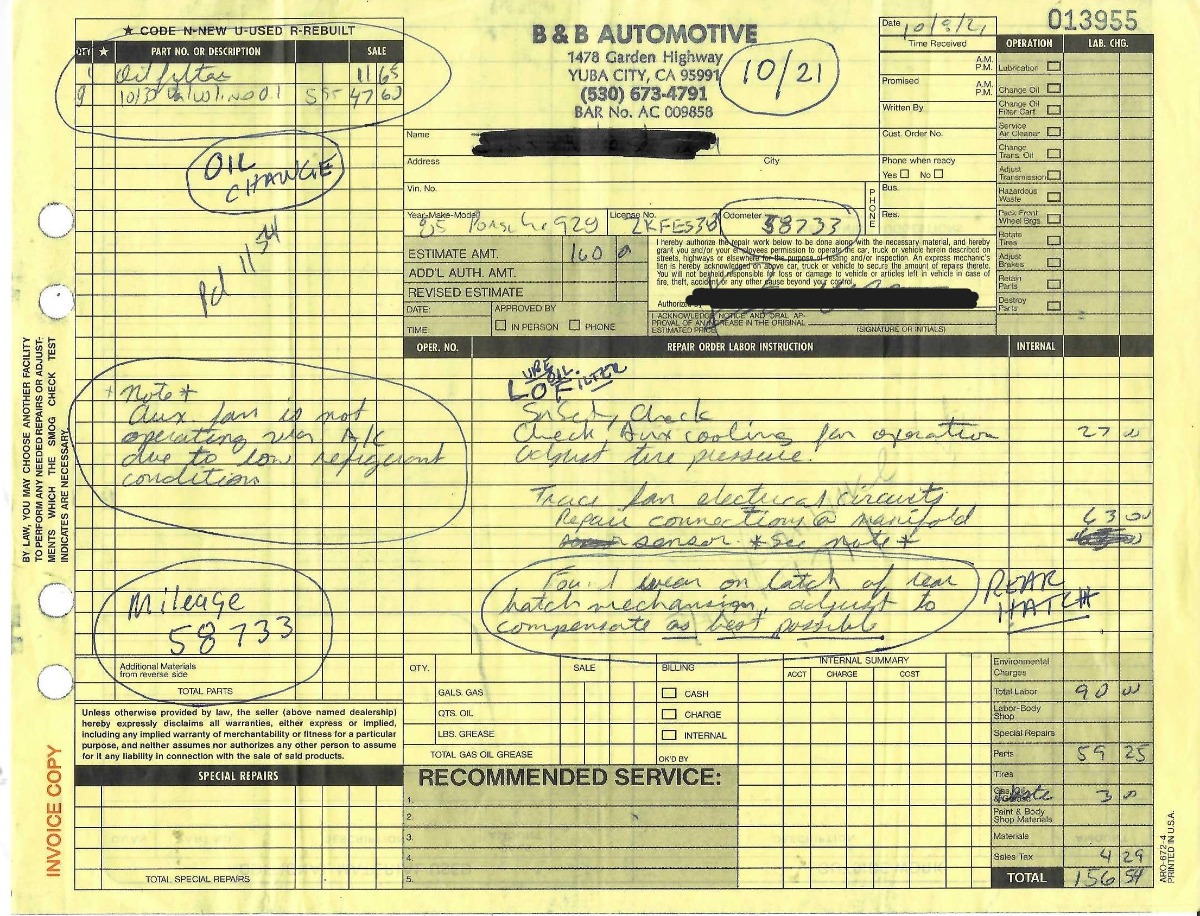 ★ CODE N-NEW U-USED R-REBUILT
QTY ★ PART NO. OR DESCRIPTION SALE
1 Oil filter 11 65
9 10/30 Valvolino Oil 47 60
OIL
CHANGE
pd 11
B & B AUTOMOTIVE
1478 Garden Highway
YUBA CITY, CA 95991
(530) 673-4791
BAR No. AC 009858
10/21
Date 10/8/21
013955
Time Received
A.M.
P.M.
Promised
A.M.
P.M.
Written By
Name
Cust. Order No.
Address City
Phone when ready
Yes No
Vin. No.
PHONE
Bus.
Res.
Year-Make-Model License No. Odometer
85 Porsche 929 58733
ESTIMATE AMT. 160 00
ADD'L AUTH. AMT.
REVISED ESTIMATE
DATE:
TIME:
APPROVED BY
IN PERSON PHONE
I hereby authorize the repair work below to be done along with the necessary material, and hereby
grant you and/or your employees permission to operate the car, truck or vehicle herein described on
streets, highways or elsewhere for the purpose of testing and/or inspection. An express mechanic's
lien is hereby acknowledged on above car, truck or vehicle to secure the amount of repairs thereto.
You will not be held responsible for loss or damage to vehicle or articles left in vehicle in case of
fire, theft, accident or any other cause beyond your control.
I ACKNOWLEDGE NOTICE AND ORAL AP-
PROVAL OF AN INCREASE IN THE ORIGINAL
ESTIMATED PRICE.
(SIGNATURE OR INITIALS)
OPERATION LAB. CHG.
Lubrication
Change Oil
Change Oil
Filter Cart.
Service
Air Cleaner
Change
Trans. Oil
Adjust
Transmission
Hazardous
Waste
Pack Front
Wheel Brgs.
Rotate
Tires
Adjust
Brakes
Retain
Parts
Destroy
Parts
OPER. NO. REPAIR ORDER LABOR INSTRUCTION INTERNAL
LUBE OIL FILTER
Safety Check
Check Aux cooling fan operation 27 00
adjust tire pressure.
Trace fan electrical circuits
Repair connections @ manifold 63 00
sensor. *See note*
Found wear on latch of rear
hatch mechanism, adjust to
compensate as best possible
REAR
HATCH
* Note *
Aux fan is not
operating via A/C
due to low refigerant
condition
Mileage
58733
BY LAW, YOU MAY CHOOSE ANOTHER FACILITY
TO PERFORM ANY NEEDED REPAIRS OR ADJUST-
MENTS WHICH THE SMOG CHECK TEST
INDICATES ARE NECESSARY.
Additional Materials
from reverse side
TOTAL PARTS
Unless otherwise provided by law, the seller (above named dealership)
hereby expressly disclaims all warranties, either express or implied,
including any implied warranty of merchantability or fitness for a particular
purpose, and neither assumes nor authorizes any other person to assume
for it any liability in connection with the sale of said products.
SPECIAL REPAIRS
TOTAL SPECIAL REPAIRS
QTY. SALE BILLING
GALS. GAS CASH
QTS. OIL CHARGE
LBS. GREASE INTERNAL
TOTAL GAS OIL GREASE OK'D BY
INTERNAL SUMMARY
ACCT CHARGE COST
RECOMMENDED SERVICE:
1.
2.
3.
4.
5.
Environmental
Charges
Total Labor 90 00
Labor-Body
Shop
Special Repairs
Parts 59 25
Tires
Waste 3 00
Paint & Body
Shop Materials
Materials
Sales Tax 4 29
TOTAL 156 54
INVOICE COPY
ARO-672-4
PRINTED IN U.S.A.